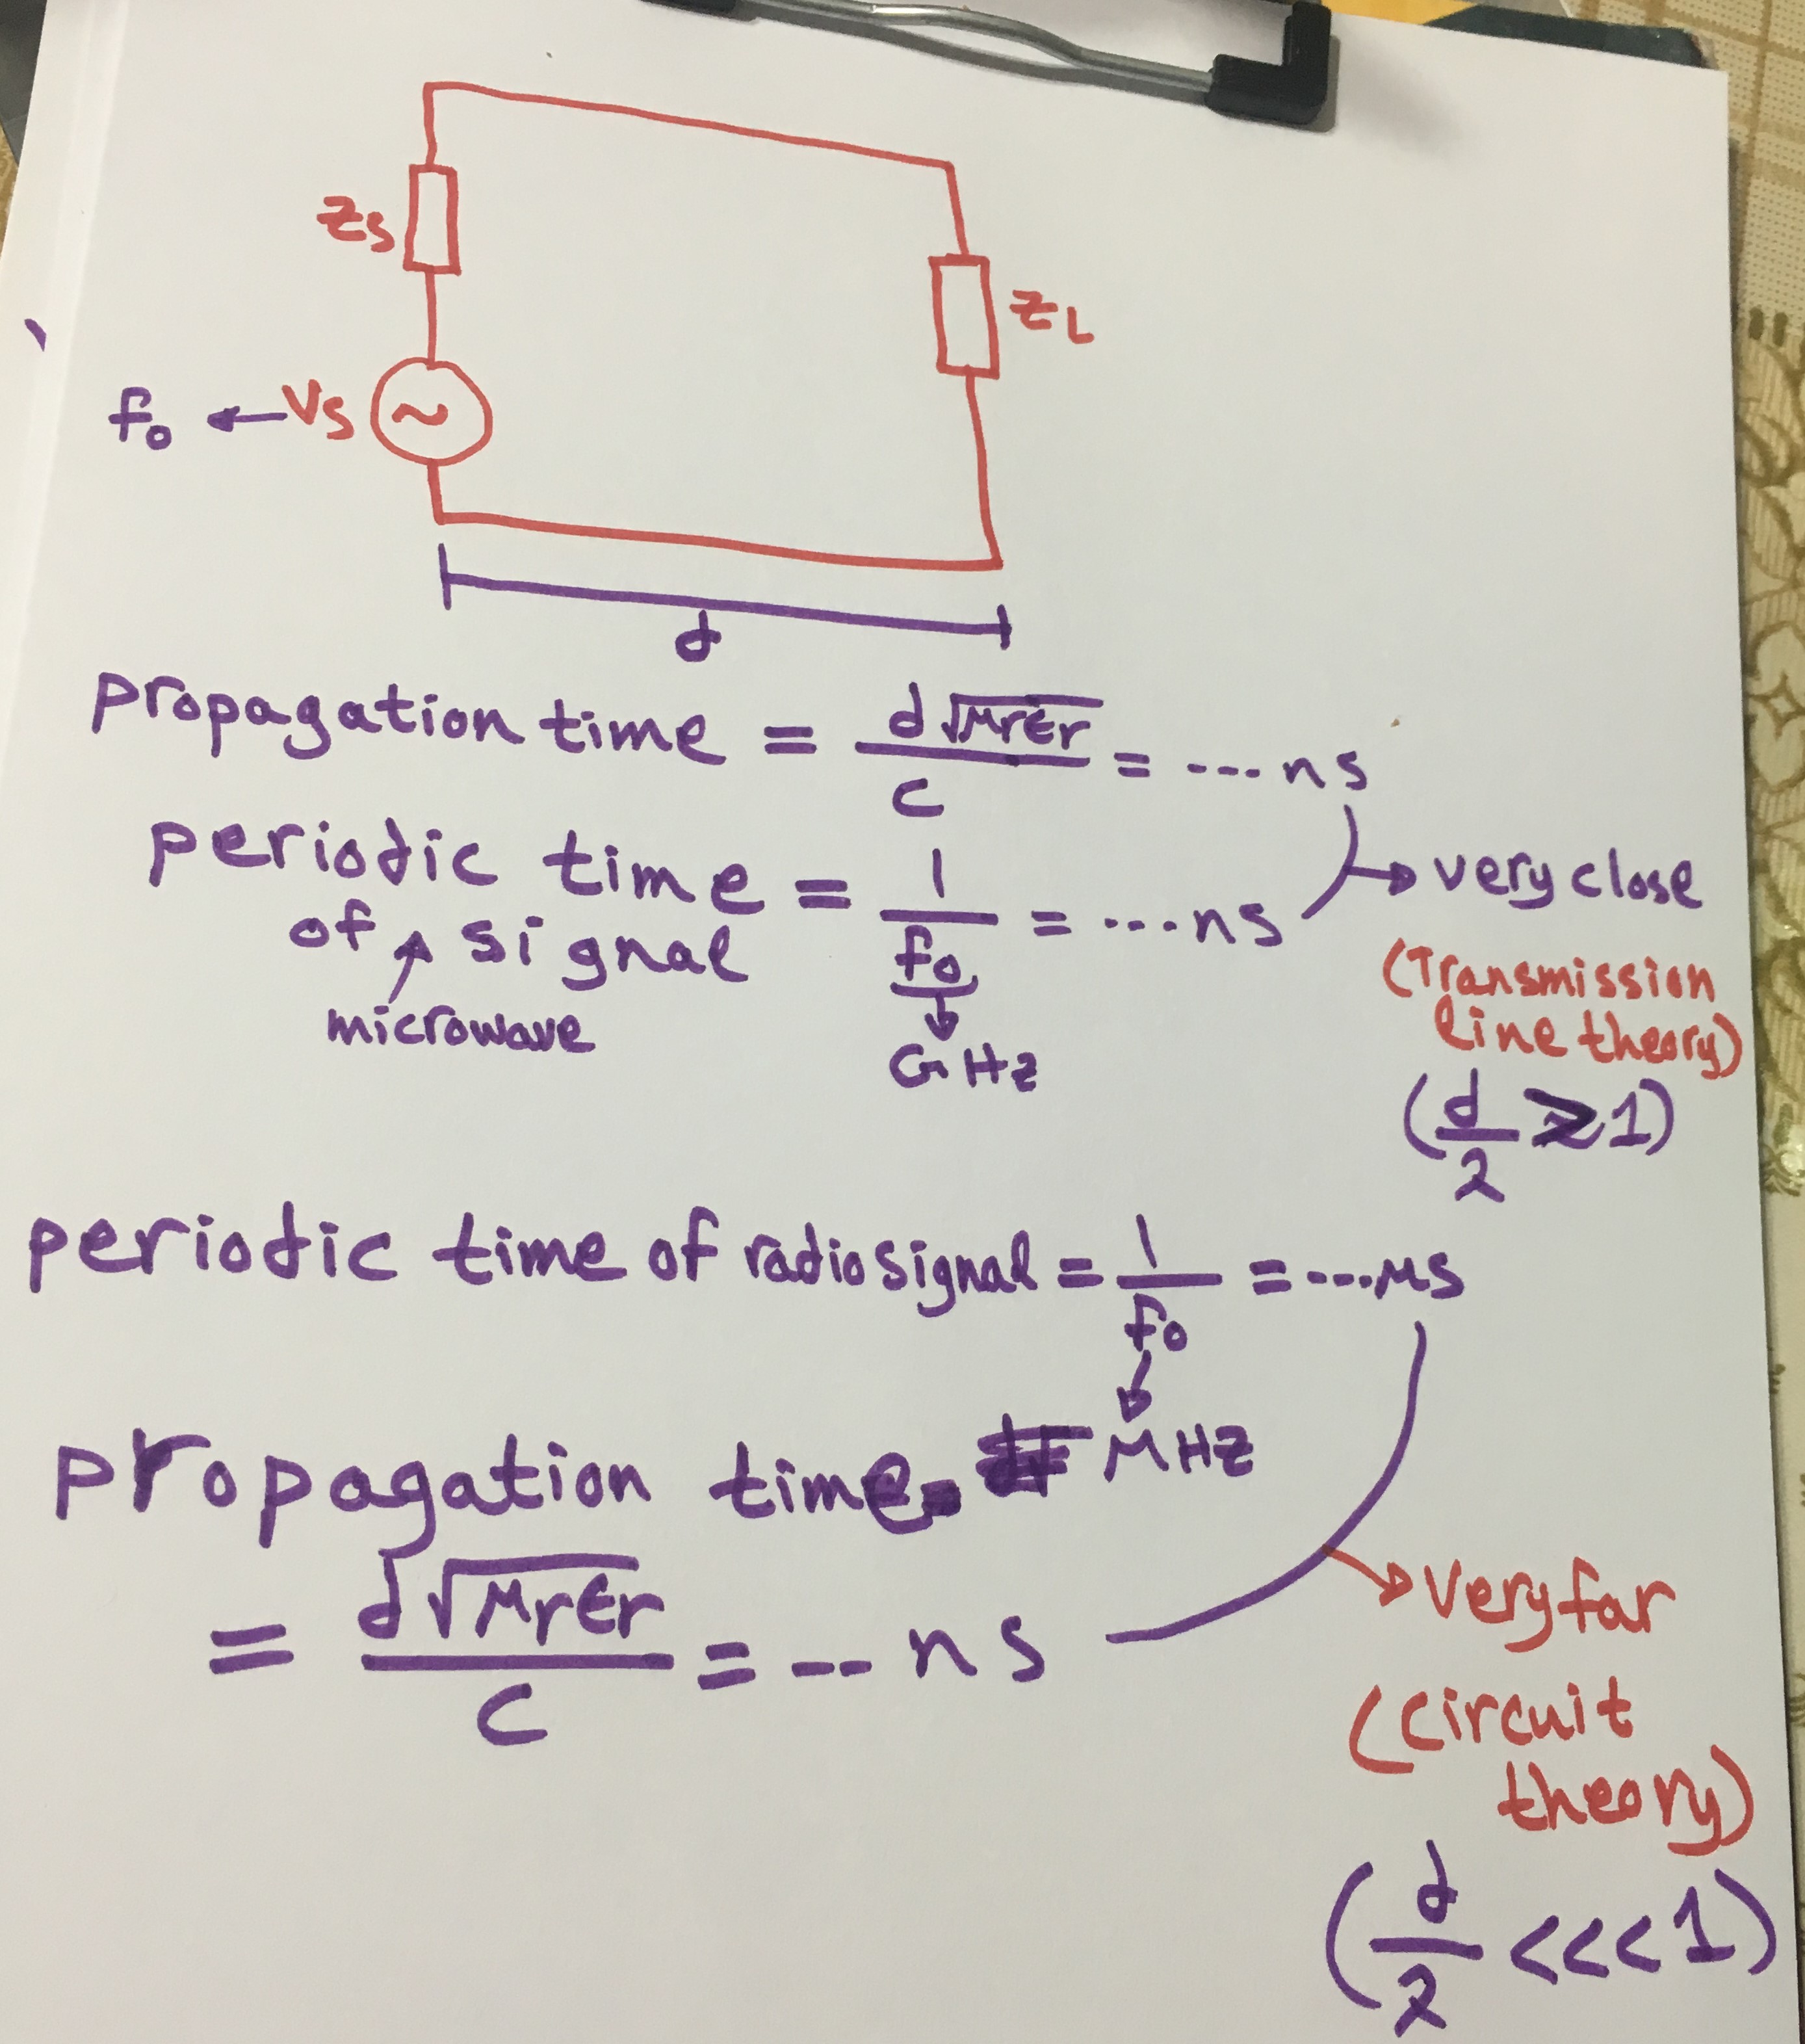 Zs
ZL
fo ← Vs
~
d
propagation time = d√μrεr / c = ---- ns
periodic time = 1 / fo = ---- ns
of ↗ signal
microwave
GHz
→ very close
(Transmission
line theory)
(d/λ ≥ 1)
periodic time of radio signal = 1 / fo = ---- μs
MHz
propagation time
= d√μrεr / c = --- ns
→ very far
(circuit
theory)
(d/λ <<< 1)